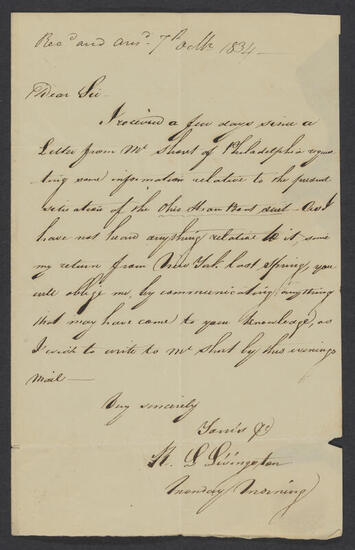 Rec^d and ans^d 7^th Oct^r 1834
Dear Sir
I received a few days since a
Letter from M^r Short of Philadelphia reques
ting some information relative to the present
situation of the Ohio Steam Boat suit. As I
have not heard anything relative to it, since
my return from New York last spring, you
will oblige me, by communicating anything
that may have come to your Knowledge, as
I wish to write to M^r Short by this evenings
Mail
Very sincerely
Yours &c
R. L Livingston
Monday Morning